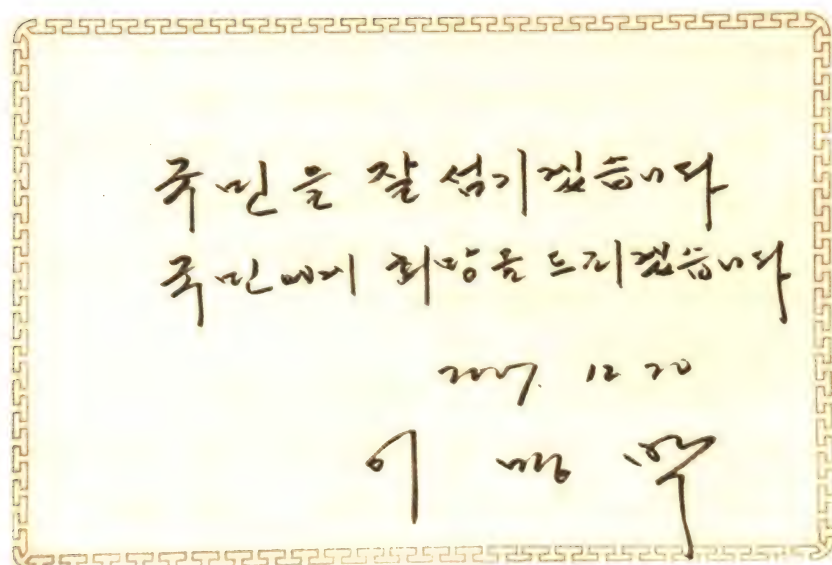 국민을 잘 섬기겠습니다
국민에게 희망을 드리겠습니다
2007. 12 20
이 명 박